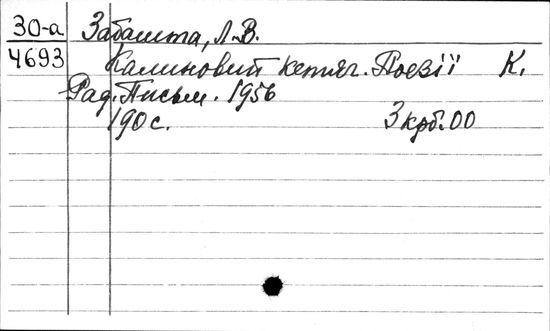 30-а Забашта, Л.В.
4693 Калиновий кетяг. Поезії К.
Рад. Письм. 1956
190 с. 3 крб. 00